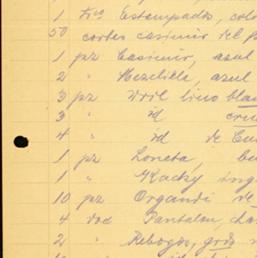 1 Estampados, colo
50 cortes casimir del p
1 pz Casimir, azul
2 " Mezclilla, azul
3 pz Dril lino blan
3 " id cru
4 " id de
1 pz Loneta, be
1 " Kacky ing
10 pz Organdi de
4 doc Pantalon, cha
2 " Rebozos, gris n